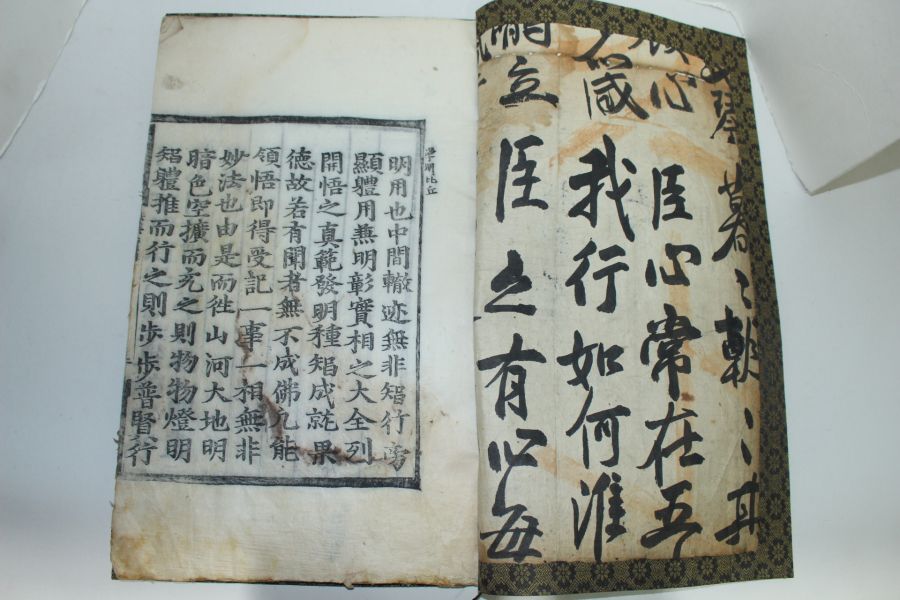 琴暮〻朝〻其
心臣心常在五
咸我行如何淮
立臣之有心每
明用也中間轍迹無非智行旁
顯體用兼明彰實相之大全列
開悟之真範發明種智成就果
德故若有聞者無不成佛凡能
領悟即得受記一事一相無非
妙法也由是而徃山河大地明
暗色空擴而充之則物物燈明
智體推而行之則步步普賢行